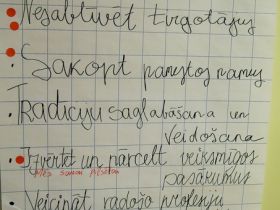 Nesablīvēt tirgotājus
Sakopt pamestos namus
Tradīciju saglabāšana un
veidošana
Izvērtēt un pārcelt veiksmīgos
pasākumus
Veicināt radošo profesiju